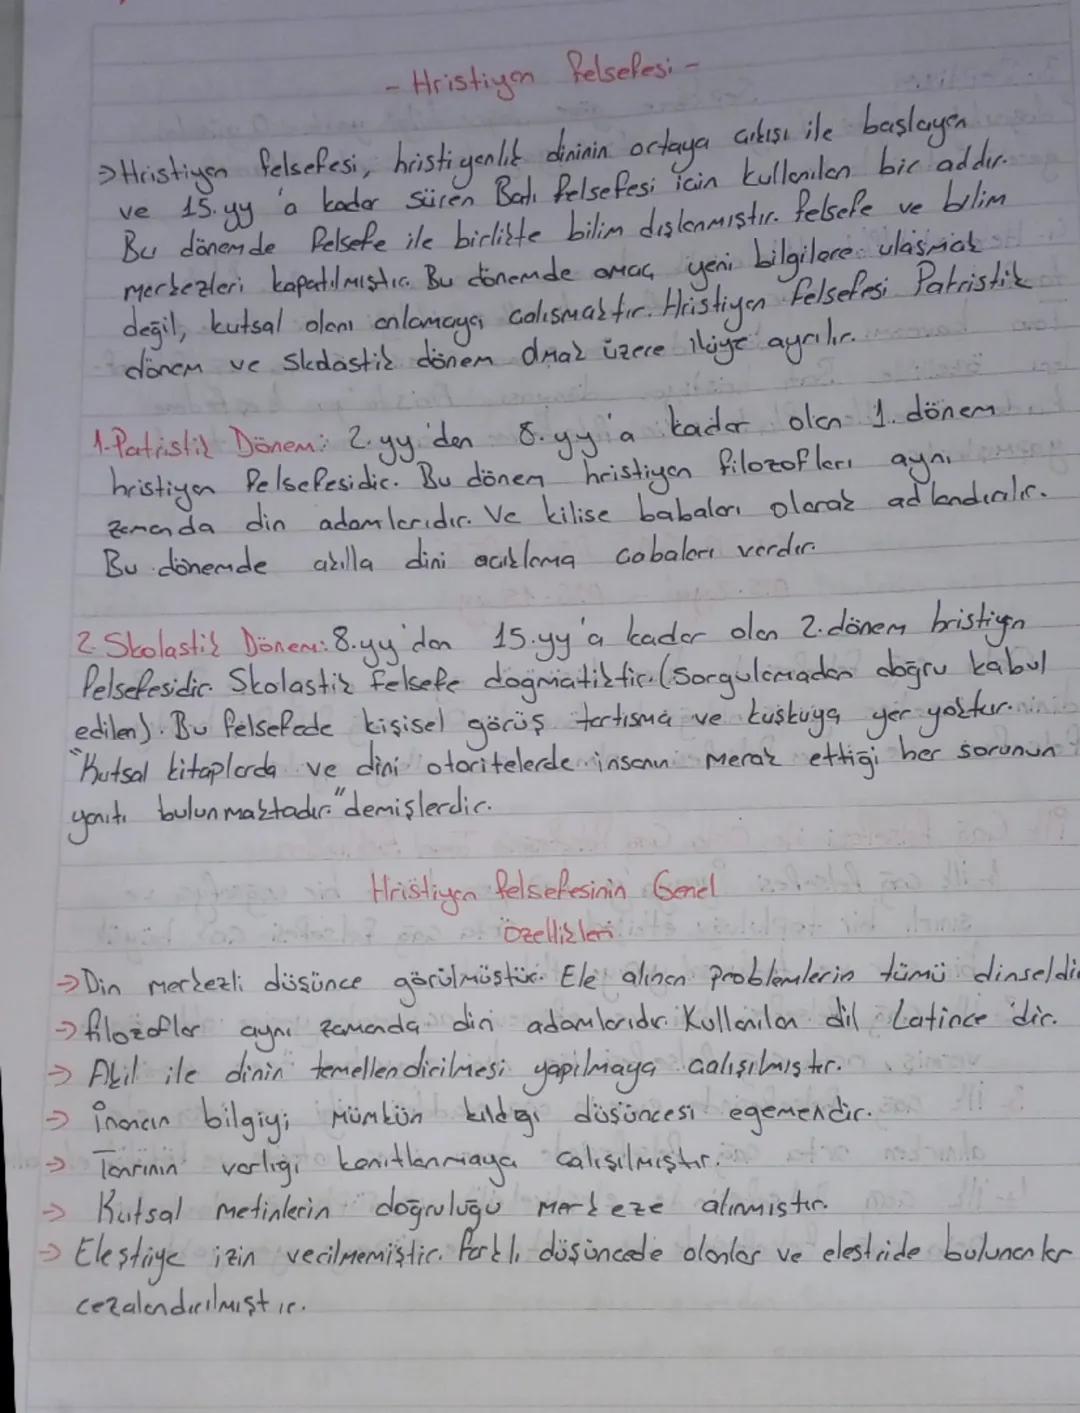 - Hristiyan felsefesi -
→Hristiyan felsefesi, hristiyanlık dininin ortaya çıkışı ile başlayan
ve 15.yy'a kadar süren Batı felsefesi için kullanılan bir addır.
Bu dönemde felsefe ile birlikte bilim dışlanmıştır. felsefe ve bilim
merkezleri kapatılmıştır. Bu dönemde amaç yeni bilgilere ulaşmak
değil, kutsal olanı anlamaya çalışmaktır. Hristiyan felsefesi Patristik
dönem ve Skolastik dönem olmak üzere ikiye ayrılır.
1.Patristik Dönem: 2.yy'dan 8.yy'a kadar olan 1.dönem
hristiyan felsefesidir. Bu dönem hristiyan filozofları aynı
zamanda din adamlarıdır. Ve kilise babaları olarak adlandırılır.
Bu dönemde akılla dini açıklama çabaları vardır.
2.Skolastik Dönem: 8.yy'dan 15.yy'a kadar olan 2.dönem hristiyan
felsefesidir. Skolastik felsefe dogmatiktir.(Sorgulamadan doğru kabul
edilen). Bu felsefede kişisel görüş tartışma ve kuşkuya yer yoktur.
"Kutsal kitaplarda ve dini otoritelerde insanın merak ettiği her sorunun
yanıtı bulunmaktadır." demişlerdir.
Hristiyan felsefesinin Genel
Özellikleri
→Din merkezli düşünce görülmüştür. Ele alınan problemlerin tümü dinseldi
→filozoflar aynı zamanda din adamlarıdır. Kullanılan dil Latince'dir.
→ Akıl ile dinin temellendirilmesi yapılmaya çalışılmıştır.
→ İnancın bilgiyi mümkün kıldığı düşüncesi egemendir.
→ Tanrının varlığı kanıtlanmaya çalışılmıştır.
→ Kutsal metinlerin doğruluğu merkeze alınmıştır.
→ Eleştiriye izin verilmemiştir. farklı düşüncede olanlar ve eleştride bulunanlar
cezalandırılmıştır.